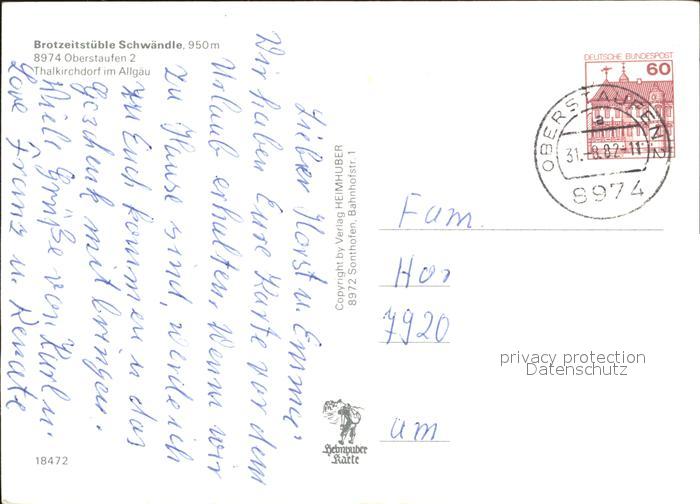 Brotzeitstüble Schwändle, 950 m
8974 Oberstaufen 2
Thalkirchdorf im Allgäu
Lieber Horst u. Emma,
Wir haben Eure Karte vor dem
Urlaub erhalten. Wenn wir
zu Hause sind, werde ich
zu Euch kommen u das
Geschenk mit bringen.
Viele Grüße von Karl u.
Franz u. Renate
18472
Copyright by Verlag HEIMHUBER
8972 Sonthofen, Bahnhofstr. 1
Heimhuber
Karte
DEUTSCHE BUNDESPOST
60
OBERSTAUFEN 2
a
31.-8.82-11
8974
Fam.
Hor
7920
am
privacy protection
Datenschutz